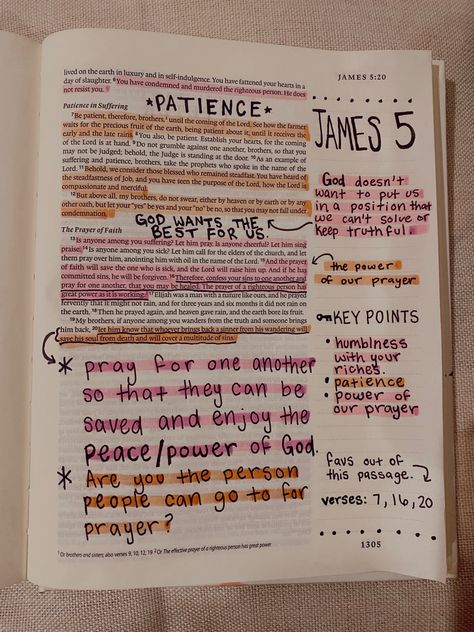 JAMES 5:20
lived on the earth in luxury and in self-indulgence. You have fattened your hearts in a
day of slaughter. 6You have condemned and murdered the righteous person. He does
not resist you.
*PATIENCE*
JAMES 5
Patience in Suffering
7Be patient, therefore, brothers,1 until the coming of the Lord. See how the farmer
waits for the precious fruit of the earth, being patient about it, until it receives the
early and the late rains. 8You also, be patient. Establish your hearts, for the coming
of the Lord is at hand. 9Do not grumble against one another, brothers, so that you
may not be judged; behold, the Judge is standing at the door. 10As an example of
suffering and patience, brothers, take the prophets who spoke in the name of the
Lord. 11Behold, we consider those blessed who remained steadfast. You have heard of
the steadfastness of Job, and you have seen the purpose of the Lord, how the Lord is
compassionate and merciful.
12But above all, my brothers, do not swear, either by heaven or by earth or by any
other oath, but let your "yes" be yes and your "no" be no, so that you may not fall under
condemnation.
GOD WANTS THE
BEST FOR US.
God doesn't
want to put us
in a position that
we can't solve or
keep truthful.
The Prayer of Faith
13Is anyone among you suffering? Let him pray. Is anyone cheerful? Let him sing
praise. 14Is anyone among you sick? Let him call for the elders of the church, and let
them pray over him, anointing him with oil in the name of the Lord. 15And the prayer
of faith will save the one who is sick, and the Lord will raise him up. And if he has
committed sins, he will be forgiven. 16Therefore, confess your sins to one another and
pray for one another, that you may be healed. The prayer of a righteous person has
great power as it is working.2 17Elijah was a man with a nature like ours, and he prayed
fervently that it might not rain, and for three years and six months it did not rain on
the earth. 18Then he prayed again, and heaven gave rain, and the earth bore its fruit.
19My brothers, if anyone among you wanders from the truth and someone brings
him back, 20let him know that whoever brings back a sinner from his wandering will
save his soul from death and will cover a multitude of sins.
the power
of our prayer
KEY POINTS
• humblness
with your
riches.
• patience
• power of
our prayer
* pray for one another
so that they can be
saved and enjoy the
peace/power of God.
* Are you the person
people can go to for
prayer?
favs out of
this passage.
verses: 7,16,20
1 Or brothers and sisters; also verses 9, 10, 12, 19 2 Or The effective prayer of a righteous person has great power
1305